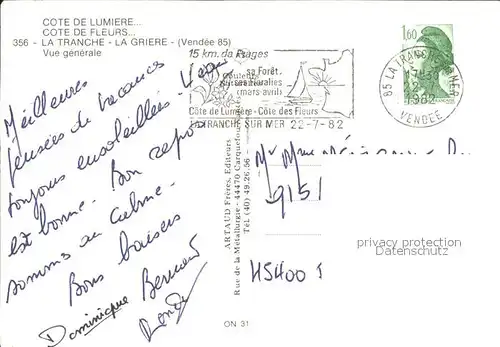 COTE DE LUMIERE...
COTE DE FLEURS...
356 - LA TRANCHE - LA GRIERE - (Vendée 85)
Vue générale
15 km. de Plages
Forêt
Floralies
(mars avril)
Côte de Lumière - Côte des Fleurs
LA TRANCHE SUR MER 22-7-82
85 LA TRANCHE S/MER
17H30
22-7
1982
VENDEE
1,60
Meilleures
pensées de vacances
toujours ensoleillées.
est bonne. Bon repos
sommes au calme.
Bons baisers
Dominique Bernard
Renée
ARTAUD Frères, Editeurs
Rue de la Métallurgie - 44470 Carquefou
Tél. (40) 49.26.56
Mr Mme
9151
45400
privacy protection
Datenschutz
ON 31